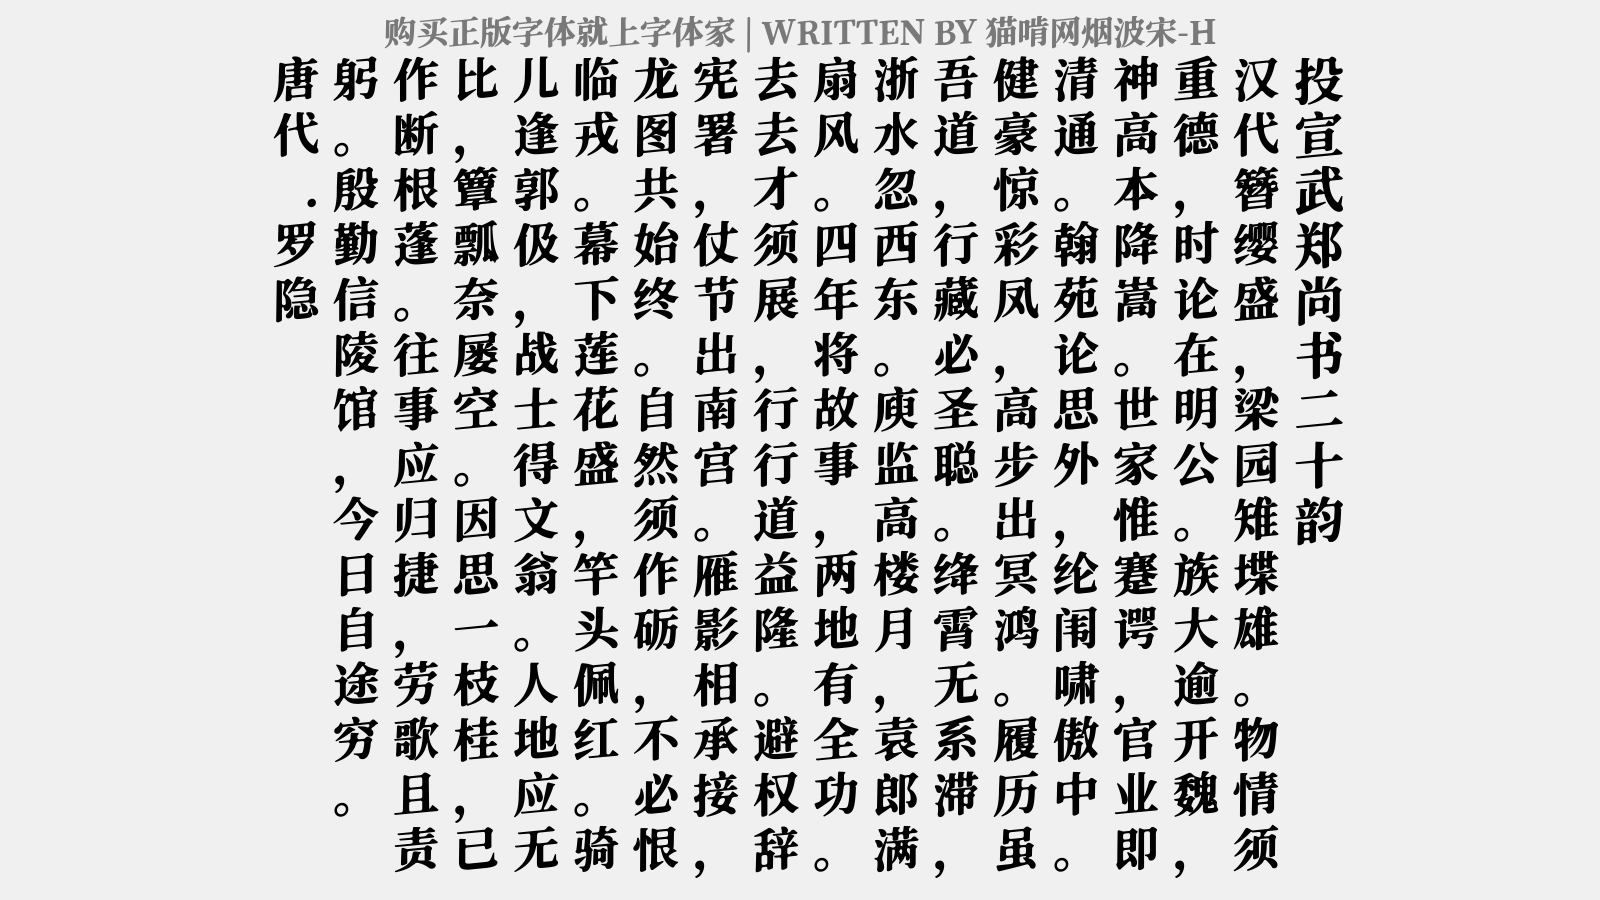 购买正版字体就上字体家 | WRITTEN BY 猫啃网烟波宋-H
投宣武郑尚书二十韵
汉代簪缨盛，梁园雉堞雄。物情须
重德，时论在明公。族大逾开魏，
神高本降嵩。世家惟蹇谔，官业即
清通。翰苑论思外，纶闱啸傲中。
健豪惊彩凤，高步出冥鸿。履历虽
吾道，行藏必圣聪。绛霄无系滞，
浙水忽西东。庾监高楼月，袁郎满
扇风。四年将故事，两地有全功。
去去才须展，行行道益隆。避权辞
宪署，仗节出南宫。雁影相承接，
龙图共始终。自然须作砺，不必恨
临戎。幕下莲花盛，竿头佩红。骑
儿逢郭伋，战士得文翁。人地应无
比，簟瓢奈屡空。因思一枝桂，已
作断根蓬。往事应归捷，劳歌且责
躬。殷勤信陵馆，今日自途穷。
唐代.罗隐